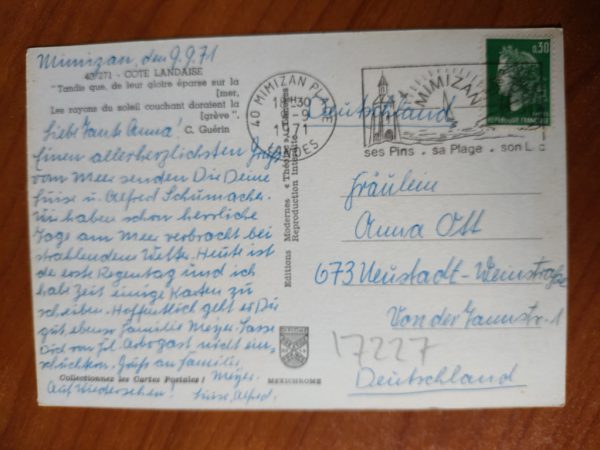 Mimizan, den 9.9.71
40/271 - COTE LANDAISE
"Tandis que, de leur gloire éparse sur la
[mer,
Les rayons du soleil couchant doraient la
[grève".
C. Guérin
Liebe Tante Anna!
Einen allerherzlichsten Gruß
vom Meer senden Dir Deine
Luise u. Alfred Schumacher.
Wir haben schon herrliche
Tage am Meer verbracht bei
strahlendem Wetter. Heute ist
der erste Regentag und ich
habe Zeit einige Karten zu
schreiben. Hoffentlich geht es Dir
gut ebenso Familie Meyer. Lasse
Dich von Frl. Advogast nicht ein-
schüchtern. Gruß an Familie
Meyer.
Collectionnez les Cartes Postales !
Auf Wiedersehen! Luise, Alfred.
Editions Modernes « Théojac »
Reproduction Interdite
MEXICHROME
40 MIMIZAN PLAGE
18H30
-9
1971
LANDES
MIMIZAN
ses Pins . sa Plage . son Lac
0,30
REPUBLIQUE FRANÇAISE
Deutschland
Fräulein
Anna Ott
673 Neustadt-Weinstraße
Von der Tannstr. 1
17227
Deutschland